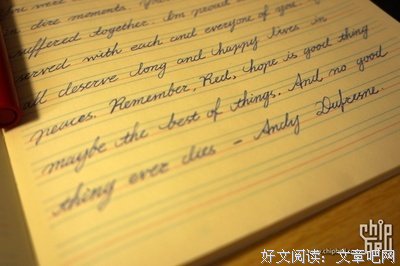 in dire moments.
suffered together. I'm proud
served with each and everyone of you.
all deserve long and happy lives in
peace. Remember, Red, hope is good thing
maybe the best of things. And no good
thing ever dies - Andy Dufresne.
chip
hell
好文阅读：文章吧网